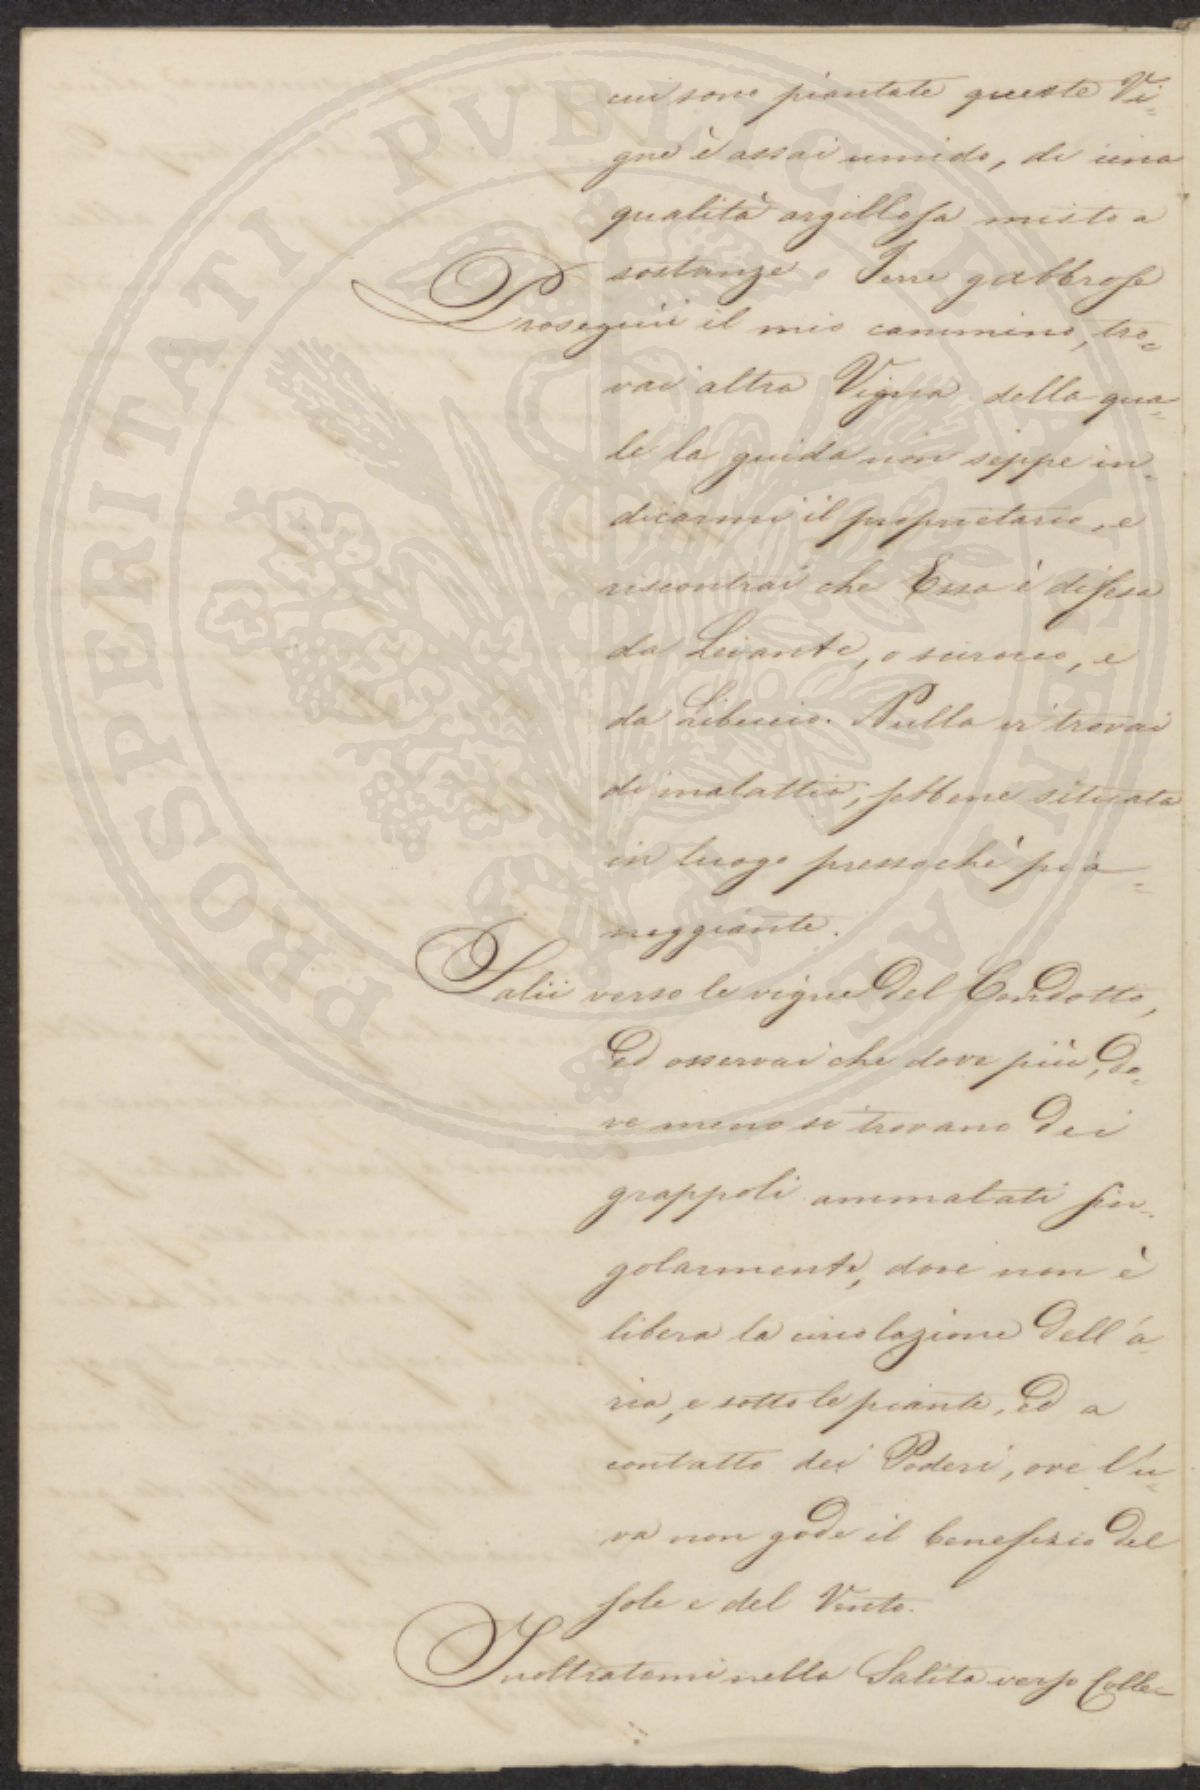 cui sono piantate queste Vi=
gne è assai umido, di una
qualità argillosa misto a
sostanze o Terre gabbrose
Proseguii il mio cammino, tro=
vai altra Vigna della qua=
le la guida non seppe in=
dicarmi il proprietario, e
riscontrai che Essa è difesa
da Levante, o scirocco, e
da Libeccio. Nulla vi trovai
di malattia, sebbene situata
in luogo pressochè pia=
neggiante.
Salii verso le vigne del Condotto,
ed osservai che dove più, do=
ve meno si trovano dei
grappoli ammalati sin=
golarmente, dove non è
libera la circolazione dell'a=
ria, e sotto le piante, ed a
contatto dei Poderi, ove l'u=
va non gode il benefizio del
sole e del Vento.
Inoltratomi nella Salita verso Colle=
PROSPERITATI PVBLICAE AVGENDAE